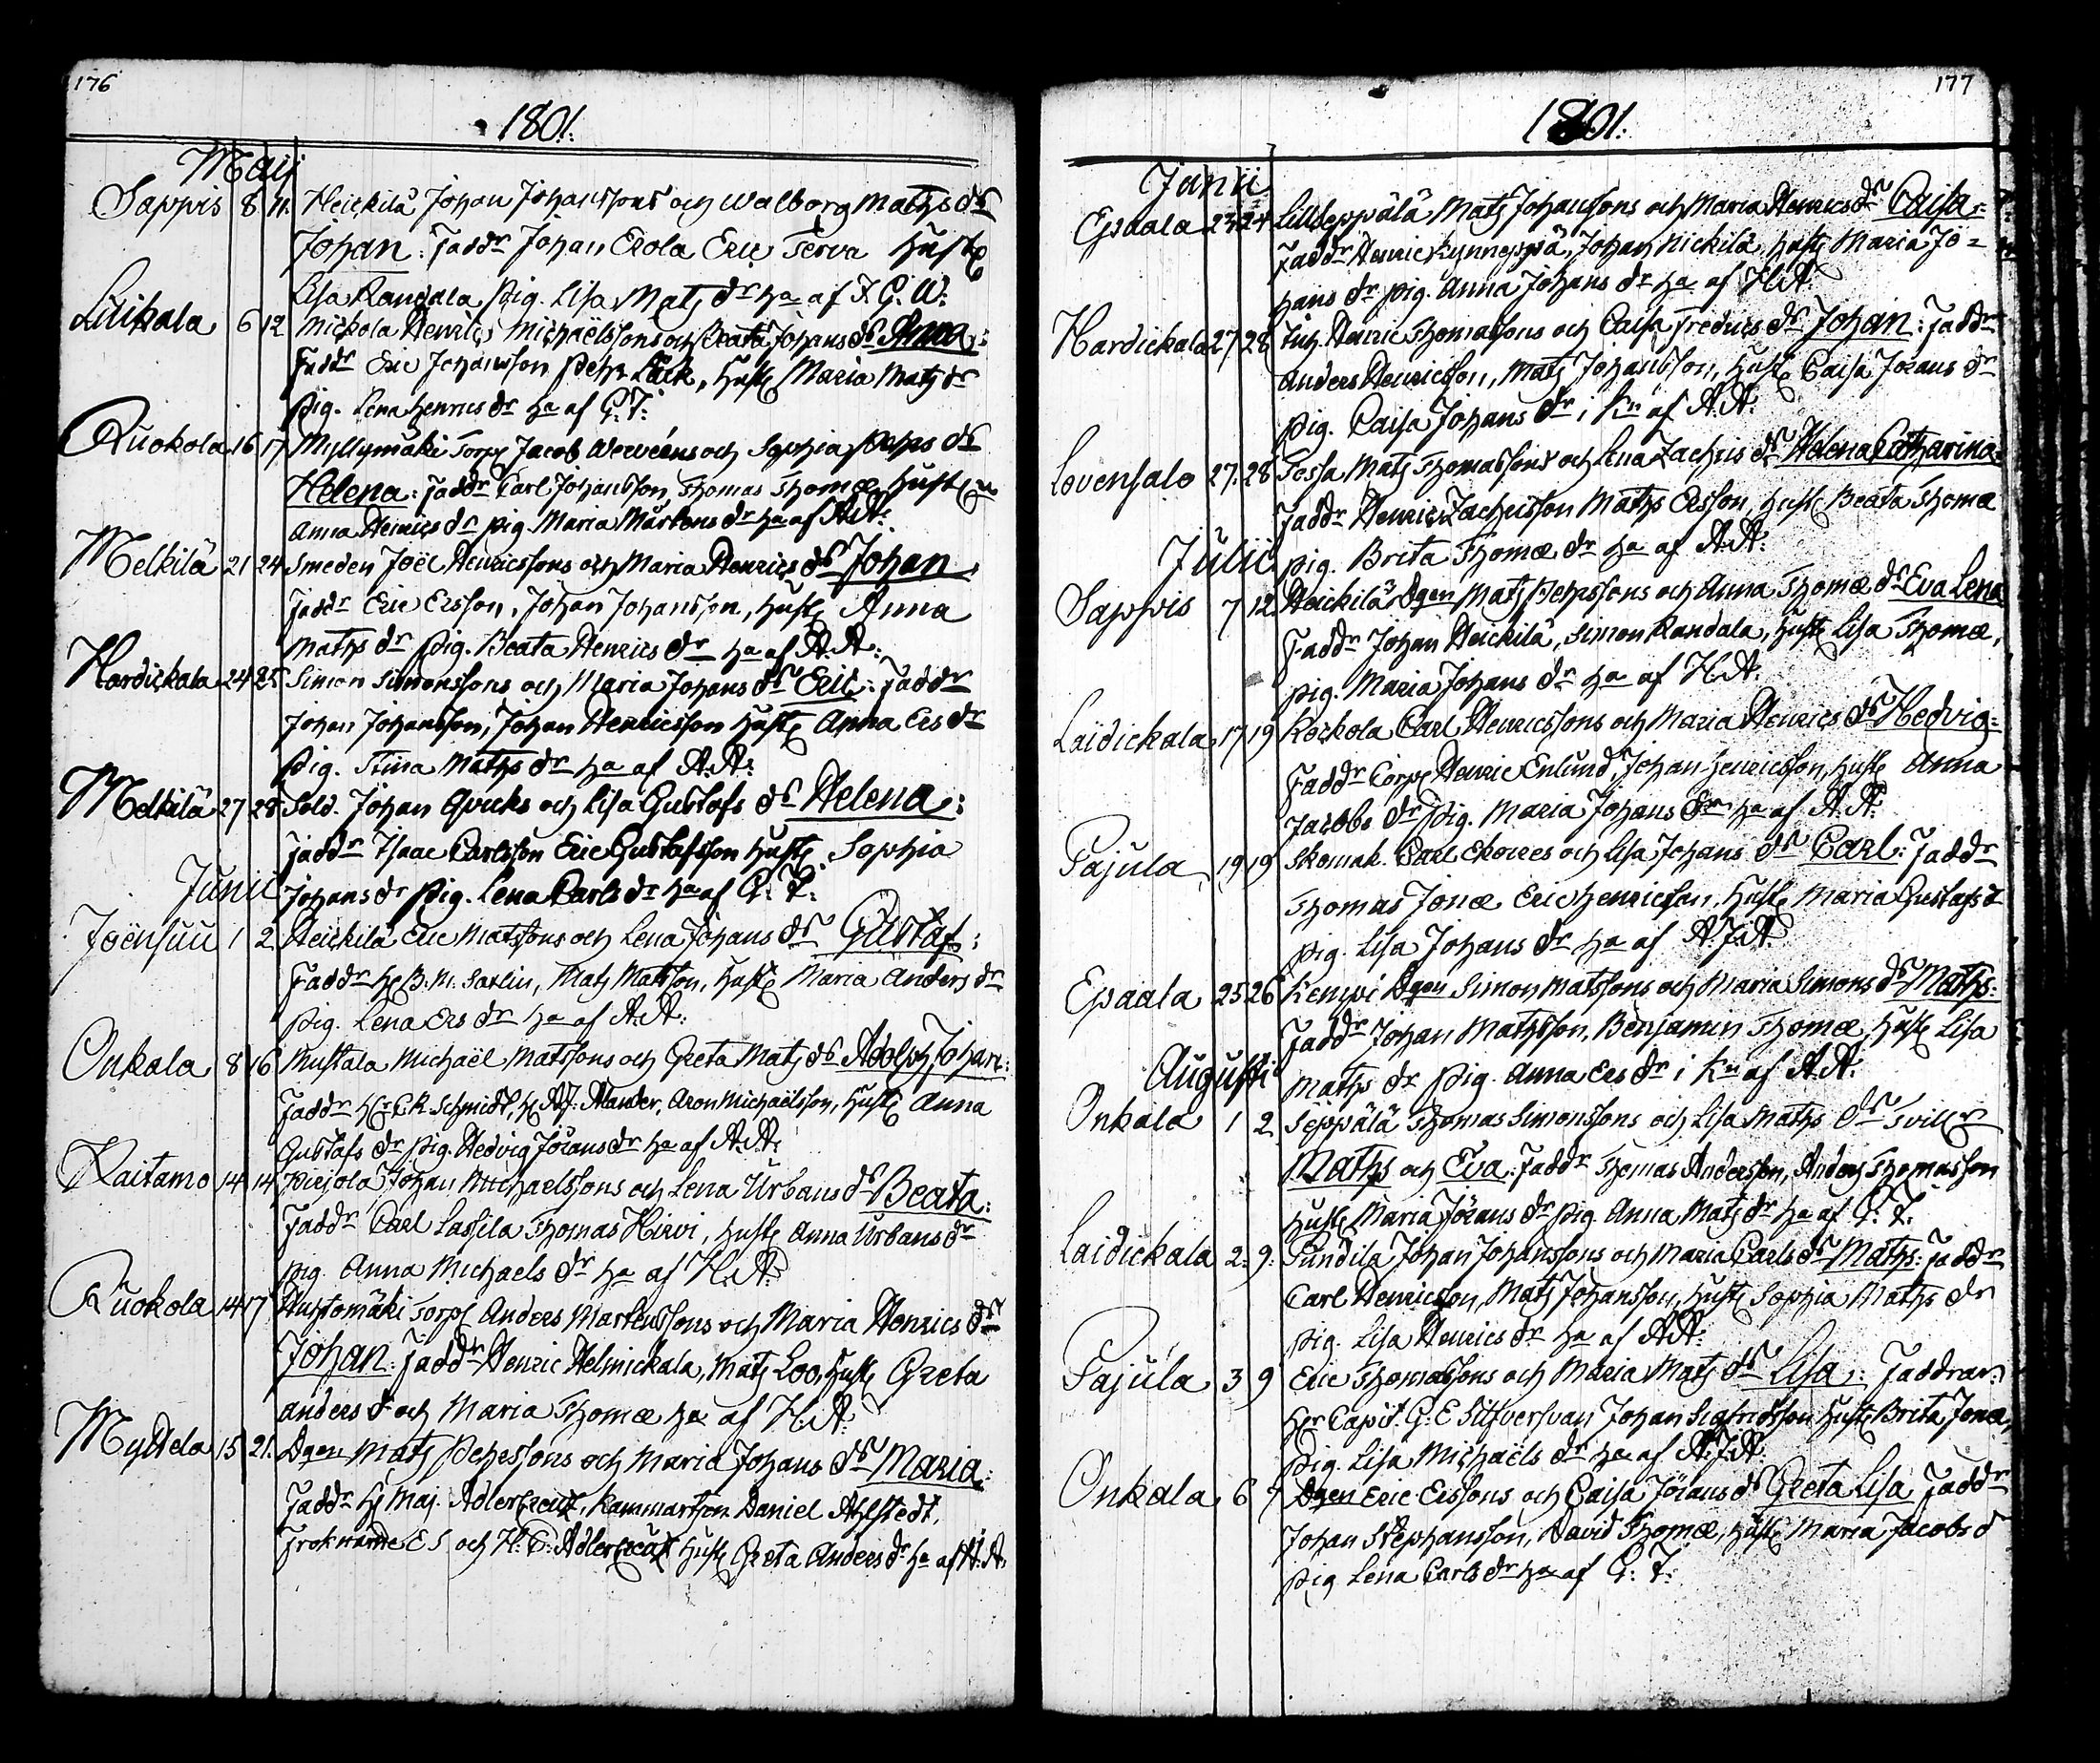 176
1801.
Maij
Sappis 8 11. Heickilä Johan Johanssons och Walborg Maths dr
Johan: Faddr Johan Erola Eric Terva Hust
Lisa Randala pig. Lisa Mats dr ha af F. G. W.
Liikala 6 12 Nickola Henric Michaëlssons och Beata Johans dr Anna:
Faddr Eric Johansson Pehr Läck, Hust Maria Mats dr
pig. Lena Henrics dr ha af G. T:
Ruokola 16 17 Myllymäki Torp Jacob Werveéns och Sophia Pehrs dr
Helena: Faddr Carl Johansson Thomas Thomæ Hust
Anna Henrics dr pig. Maria Mårtens dr ha af A.A:
Melkilä 21 24 Smeden Joël Henricssons och Maria Henrics dr Johan
Faddr Eric Ersson, Johan Johansson, Hust Anna
Maths dr pig. Beata Henrics dr ha af A. A:
Hardickala 24 25 Simon Simonssons och Maria Johans dr Eric: Faddr
Johan Johansson, Johan Henricsson Hust Anna Ers dr
pig. Stina Maths dr ha af A. A:
Melkilä 27 28 Sold. Johan Qvicks och Lisa Gustafs dr Helena:
Faddr Isaac Carlsson Eric Gustafsson Hust Sophia
Junii Johans dr pig. Lena Carls dr ha af G. T:
Joënsuu 1 2 Heickilä Eric Matssons och Lena Johans dr Gustaf:
Faddr H. B. M. Sarlin, Mats Matsson, Hust Maria Anders dr
pig. Lena Ers dr ha af A. A:
Onkala 8 16 Mustala Michaël Matssons och Greta Mats dr Adolph Johan:
Faddr Hr C. R. Schmidt, H. A.J. Alander, Aron Michaëlsson, Hust Anna
Gustafs dr pig. Hedvig Jörans dr ha af A. A:
Raitamo 14 14 Pirjola Johan Michaelssons och Lena Urbans dr Beata:
Faddr Carl Lassila Thomas Hirvi, Hust Anna Urbans dr
pig. Anna Michaels dr ha af H. A:
Ruokola 14 17 Torp Anders Mårtenssons och Maria Henrics dr
Johan: Faddr Henric Helmickala, Mats Loo, Hust Greta
Anders dr och Maria Thomæ ha af H. A:
Mylldela 15 21. Dgen Mats Pehrssons och Maria Johans dr Maria:
Faddr H Maj. Adlercreutz, Daniel Ahlstedt,
E S och H. C: Adlercreutz Hust Greta Anders dr ha af A. A.
177
1801.
Junii
Epaala 23 24 Lillseppälä Mats Johanssons och Maria Henrics dr Caisa:
Faddr Henric Kynnespä, Johan Nickilä, Hust Maria Jo=
hans dr pig. Anna Johans dr ha af H.A:
Hardickala 27 28 Inh. Henric Thomassons och Caisa Fredrics dr Johan: Faddr
Anders Henricsson, Mats Johansson, Hust Caisa Jörans dr
pig. Caisa Johans dr i Kn af A. A:
Lovensalo 27. 28 Tossa Mats Thomassons och Lena Zachris dr Helena Catharina:
Faddr Henric Zachrisson Maths Ersson, Hust Beata Thomæ
Julii pig. Brita Thomæ dr ha af A. A:
Sappis 7 12 Heickilä Dgen Mats Pehrssons och Anna Thomæ dr Eva Lena
Faddr Johan Heickilä, Simon Randala, Hust Lisa Thomæ,
pig. Maria Johans dr ha af H. A:
Laidickala 17 19 Kockola Carl Henricssons och Maria Henrics dr Hedvig:
Faddr Corp Henric Enlund, Johan Henricsson, Hust Anna
Jacobs dr pig. Maria Johans dr ha af A. A:
Pajula 19 19 Skomak. Carl Ekorres och Lisa Johans dr Carl: Faddr
Thomas Jonæ Eric Henricsson, Hust Maria Gustafs d
pig. Lisa Johans dr ha af A.J.A:
Epaala 25 26 Kempi Dgen Simon Matssons och Maria Simons dr Maths:
Faddr Johan Mathsson, Benjamin Thomæ Hust Lisa
Augusti Maths dr pig. Anna Ers dr i Kn af A. A:
Onkala 1 2 Seppälä Thomas Simonssons och Lisa Maths dr Tvill:
Maths och Eva: Faddr Thomas Andersson, Anders Thomasson
Hust Maria Jörans dr pig Anna Mats dr ha af G. T.
Laidickala 2: 9: Pundila Johan Johanssons och Maria Carls dr Maths: Faddr
Carl Henricsson, Mats Johansson, Hust Sophia Maths dr
pig. Lisa Henrics dr ha af A A:
Pajula 3 9 Eric Thomassons och Maria Mats dr Lisa: Faddrar:
Hr Capit. G: E Silfversvan Johan Sigfridsson Hust Brita Jonæ,
pig. Lisa Michaëls dr ha af A.J.A:
Onkala 6 7 Dgen Eric Erssons och Caisa Jörans dr Greta Lisa Faddr
Johan Stephansson, David Thomæ, Hust Maria Jacobs d
pig Lena Carls dr ha af G: T: